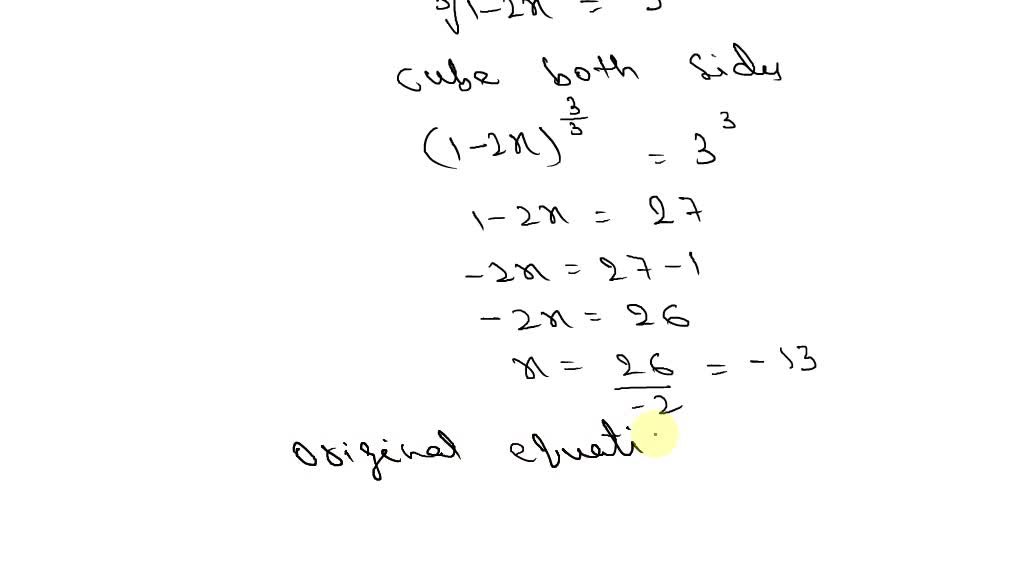 ∛1-2x = 3
cube both sides
(1-2x)^(3/3) = 3^3
1-2x = 27
-2x = 27-1
-2x = 26
x = 26/-2 = -13
original equati